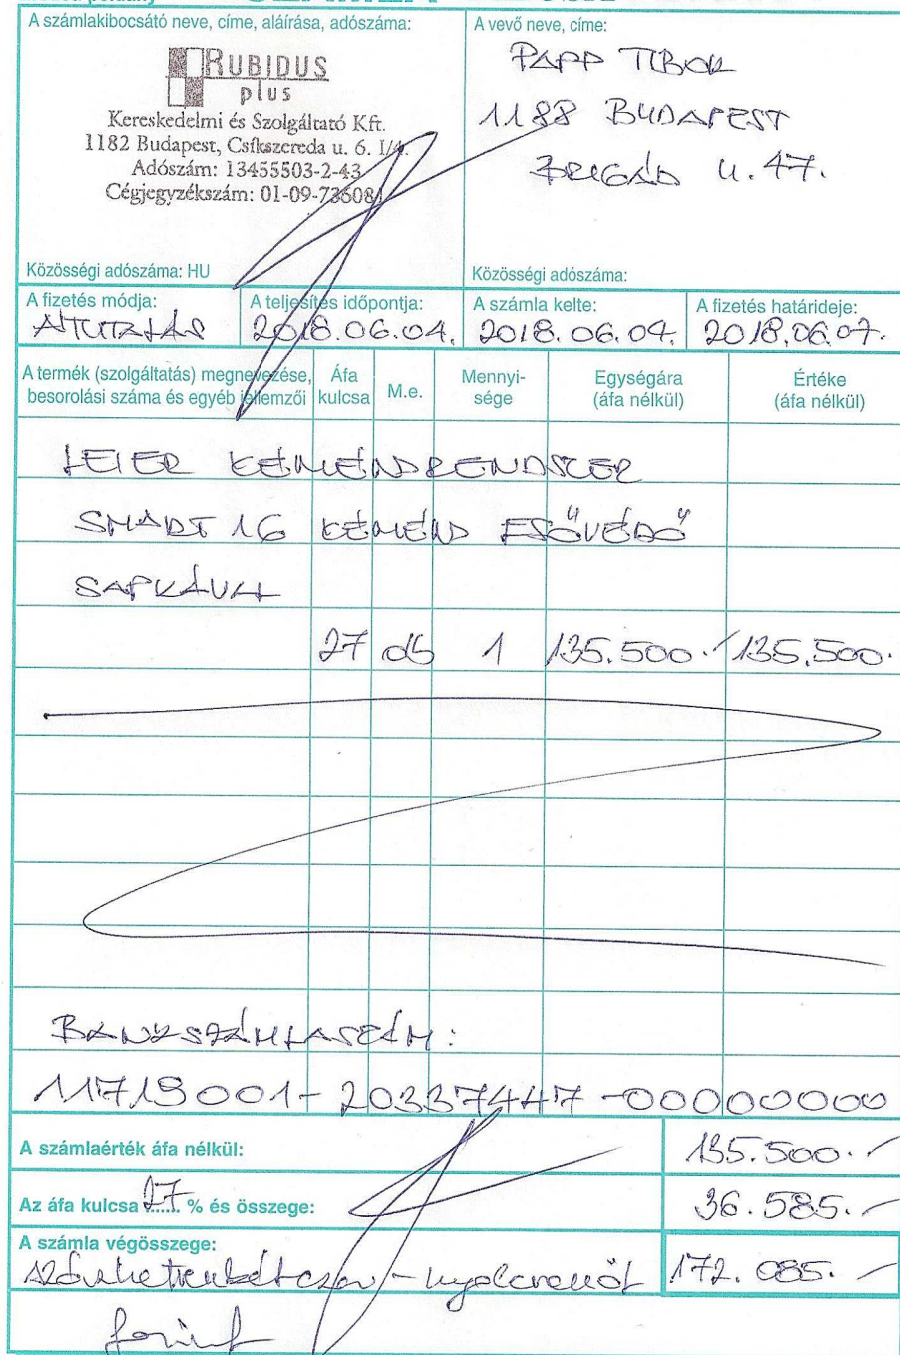 A számlakibocsátó neve, címe, aláírása, adószáma:
RUBIDUS
plus
Kereskedelmi és Szolgáltató Kft.
1182 Budapest, Csíkszereda u. 6. I/4.
Adószám: 13455503-2-43
Cégjegyzékszám: 01-09-736084
Közösségi adószáma: HU
A vevő neve, címe:
PAPP TIBOR
1188 BUDAPEST
BRIGÁD u. 47.
Közösségi adószáma:
A fizetés módja:
ÁTUTALÁS
A teljesítés időpontja:
2018.06.04.
A számla kelte:
2018.06.04.
A fizetés határideje:
2018.06.07.
A termék (szolgáltatás) megnevezése, besorolási száma és egyéb jellemzői
Áfa kulcsa
M.e.
Mennyi-
sége
Egységára
(áfa nélkül)
Értéke
(áfa nélkül)
LEIER KÉMÉNYRENDSZER
SMART 16 KÉMÉNY ESŐVÉDŐ
SAPKÁVAL
27 db 1 135.500.- 135.500.
BANKSZÁMLASZÁM:
11719001-20337447-00000000
A számlaérték áfa nélkül: 135.500.-
Az áfa kulcsa 27 % és összege: 36.585.-
A számla végösszege: 172.085.-
Százhetvenkétezer-nyolcvanöt
forint